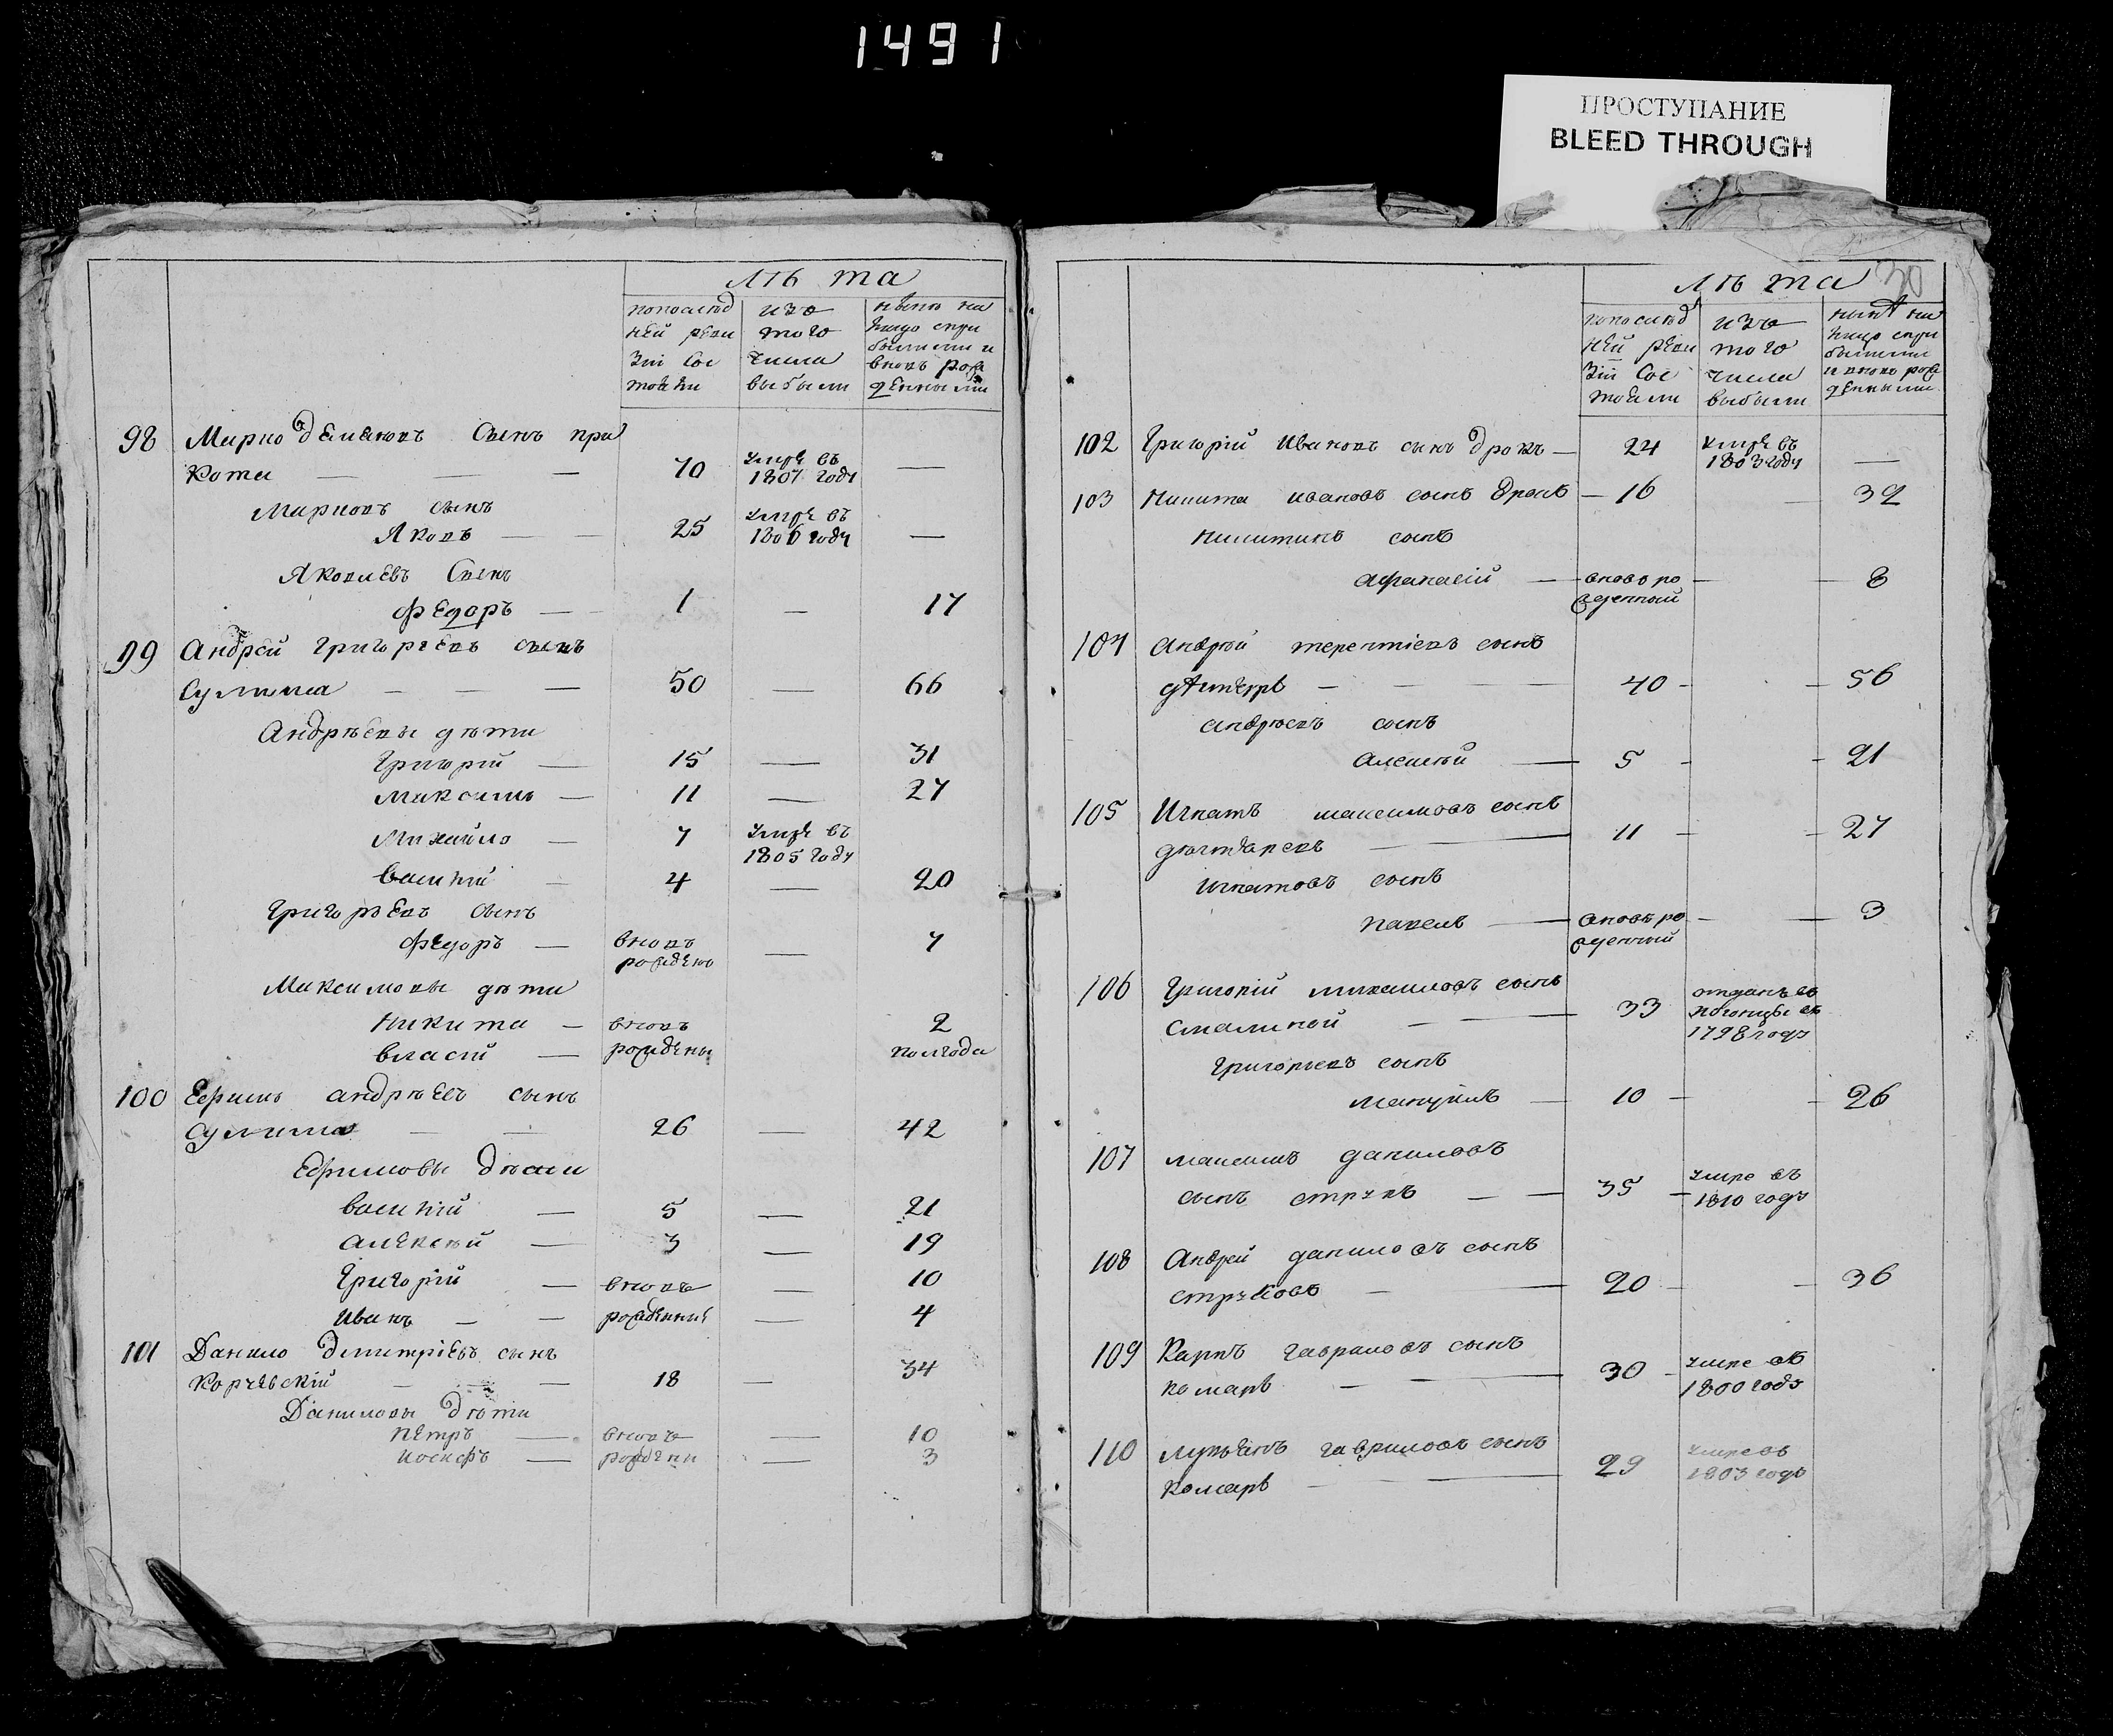 1491
ПРОСТУПАНИЕ
BLEED THROUGH
Лѣ та
попослѣд ней реви зіи сос тояли
изъ того числа выбыли
нынѣ на лицо спри былыми и вновь рож денными
98 Марко Демяновъ сынъ при
кота — — — 70 умре въ 1807 году —
Марковъ сынъ
Яковъ — — 25 умре въ 1806 году —
Яковлевъ сынъ
Федоръ — 1 — 17
99 Андрей Григорьевъ сынъ
Сулима — — — 50 — 66
Андрѣевы дѣти
Григорій — 15 — 31
Максимъ — 11 — 27
Михайло — 7 умре въ 1805 году
Василій — 4 — 20
Григорьевъ сынъ
Федоръ — вновь рожденъ — 7
Максимовы дѣти
Никита — вновь 2
Власій — рождены полгода
100 Ефимъ Андрѣевъ сынъ
Сулима — — 26 — 42
Ефимовы дѣти
Василій — 5 — 21
Алексѣй — 3 — 19
Григорій — вновь — 10
Иванъ — — рожденніе — 4
101 Данило Дмитріевъ сынъ
Корчевскій — — — 18 — 34
Даниловы дѣти
Петръ — вновь — 10
Иосифъ — рождени — 3
30
Лѣ та
попослѣд ней реви зіи сос тояли
изъ того числа выбыли
нынѣ на лицо спри былыми и вновь рож денными
102 Григорій Ивановъ сынъ — 24 умре въ 1803 году —
103 Никита Ивановъ сынъ — 16 — 32
Никитинъ сынъ
Афанасій — вновь ро жденный — 8
104 Андрей Терентіевъ сынъ
— — — 40 - - 56
Андрѣевъ сынъ
Алексѣй — 5 - - 21
105 Игнатъ Максимовъ сынъ
— 11 - - 27
Игнатовъ сынъ
Павелъ — вновь ро жденный - — 3
106 Григорій Михаиловъ сынъ
— — 33 отданъ въ въ 1798 году
Григорьевъ сынъ
Мануилъ — 10 - - 26
107 Максимъ Даниловъ
сынъ — — 35 - умре въ 1810 году
108 Андрей Даниловъ сынъ
— — 20 - - 36
109 Карпъ Гавриловъ сынъ
Комаръ — — 30 - умре въ 1800 году
110 Лукьянъ Гавриловъ сынъ
Комаръ — — 29 умре въ 1803 году